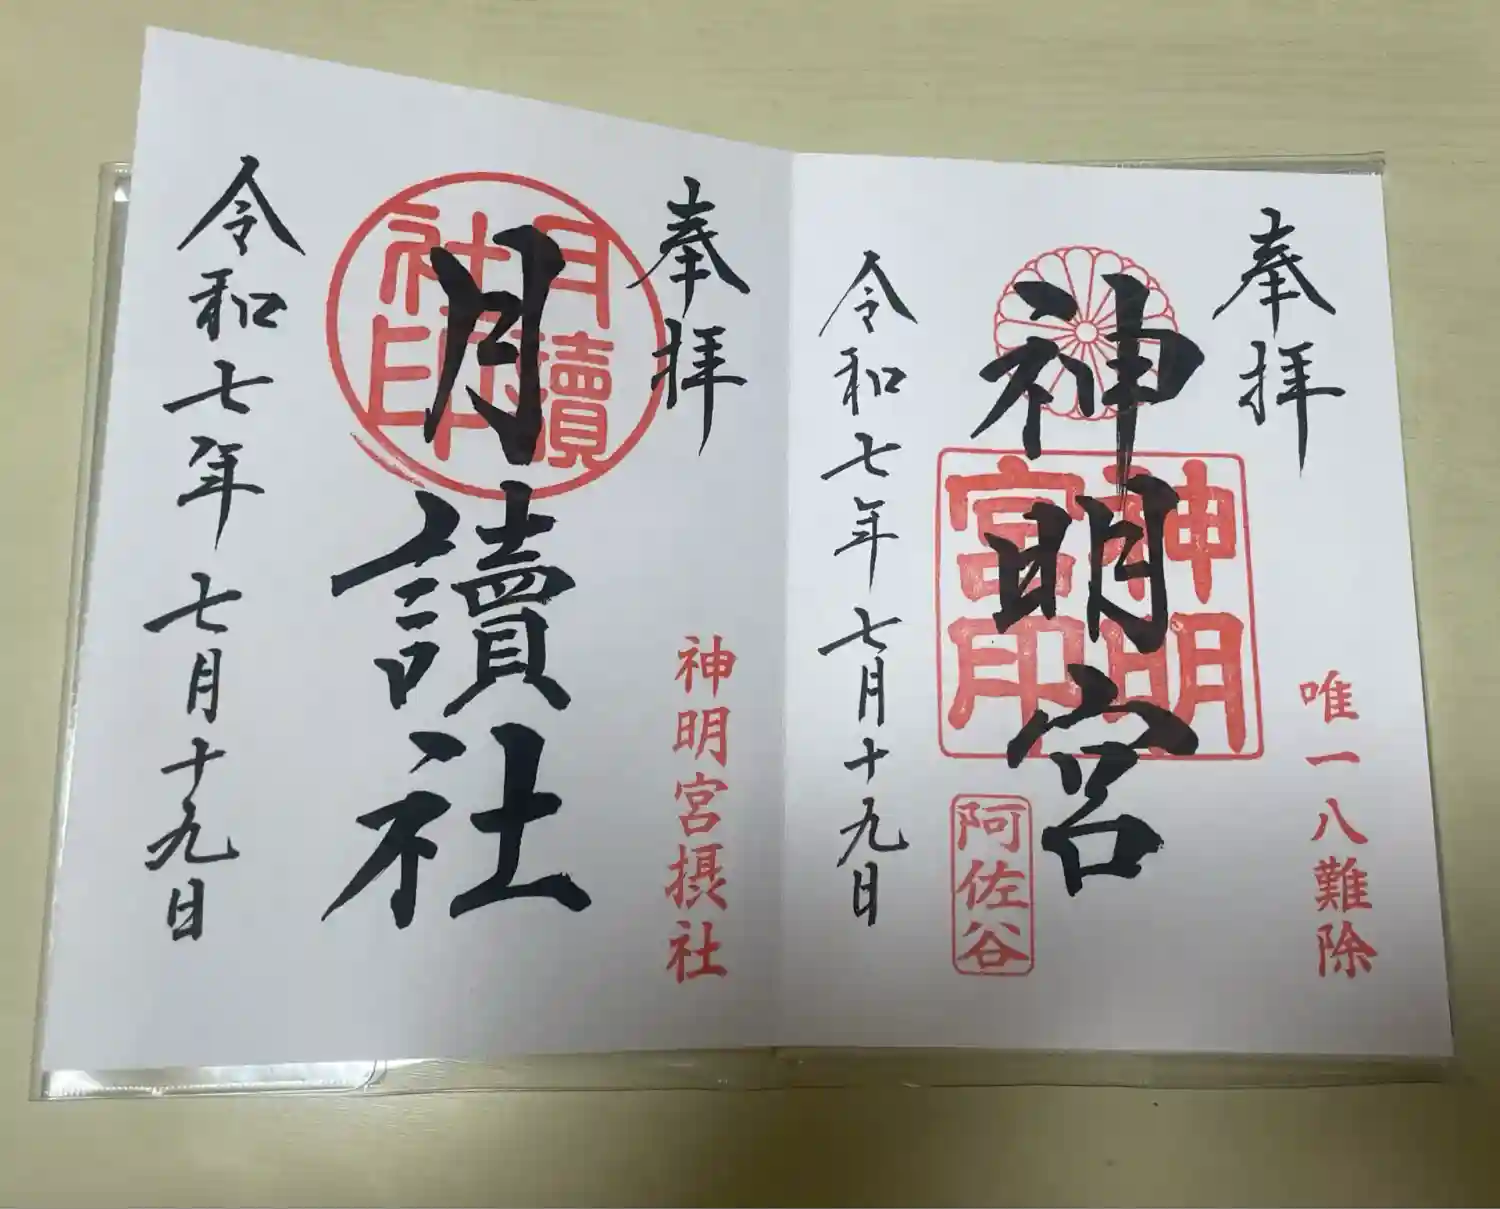 奉拝
神明宮
神明宮印
唯一八難除
阿佐谷
令和七年七月十九日
奉拝
月讀社
月讀社印
神明宮摂社
令和七年七月十九日